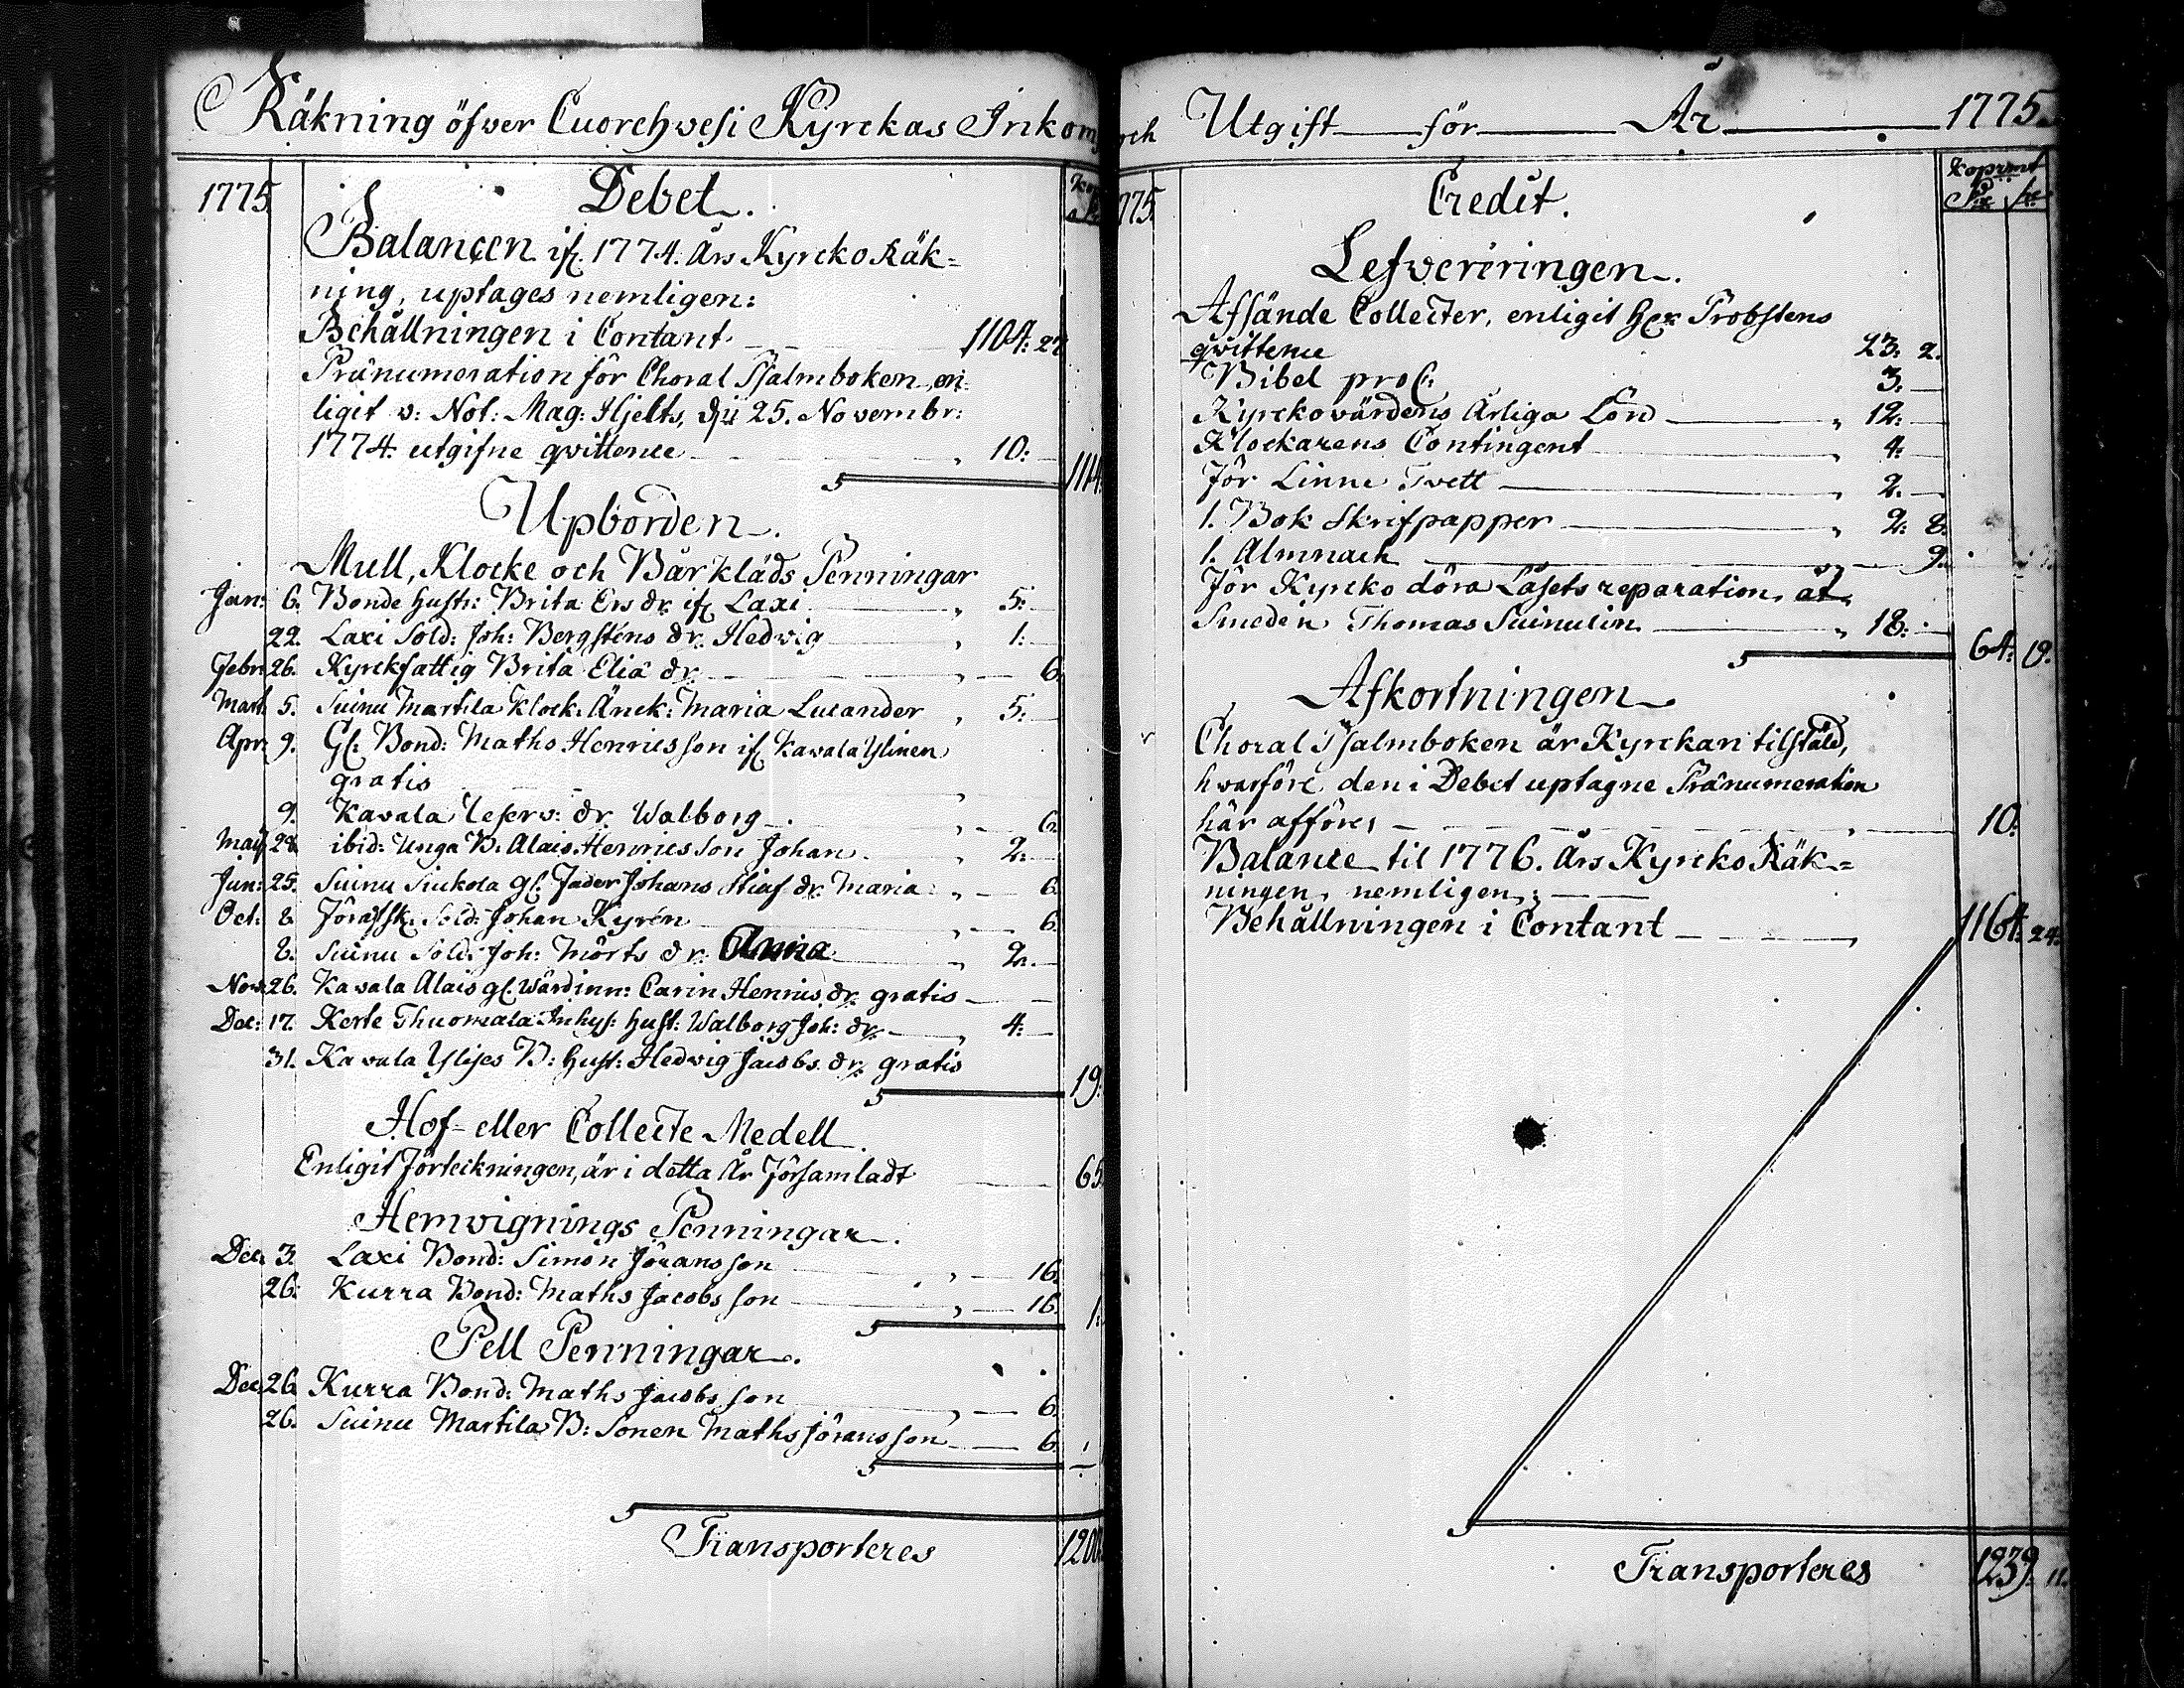 Räkning öfwer Cuorehwesi Kyrckas Inkom
1775. Debet.
Balancen ifr. 1774. Års Kyrcko Räk=
ning, uptages nemligen:
Behållningen i Contant 1104: 27
Pränumeration för Choral Psalmboken, en=
ligit v: Not: Mag: Hjelts, d. 25. Novembr:
1774. utgifne qvittence 10:
1114.
Upbörden.
Mull, Klocke och Bårkläds Penningar
Jan: 6. Bonde hustr: Brita Ers dr. ifr. Laxi 5:
22. Laxi Sold: Joh: Bergstens dr. Hedwig 1:
Febr: 26. Kyrckfattig Brita Eliæ dr. 6.
Mart. 5. Suinu Martila Klock. Änck: Maria Lucander 5:
Apr. 9. Gl: Bond: Maths Henricsson ifr. Kavala Ylinen
gratis
9. Kavala Reserv: dr. Walborg 6.
Maij 28. ibid: Unga B. Alais. Henricsson Johan 2.
Jun: 25. Suinu Siukola gl. Fader Johans Stiuf dr. Maria 6.
Oct: 8. Sold: Johan Kyrén 6.
8. Suinu Sold: Joh: Mörts dr. Anna 2.
Nov. 26. Kavala Alais gl. Wärdinn: Carin Henrics dr. gratis
Dec: 17. Kerte Thuomala Inhys: Hust: Walborg Joh: dr. 4:
31. Kavala Ylijes B: Hust: Hedwig Jacobs dr. gratis
19:
Hof- eller Collecte Medell.
Enligit Förteckningen, är i detta År Församladt 65.
Hemvignings Penningar.
Dec. 3. Laxi Bond: Simon Jöransson 16.
26. Kurra Bond: Maths Jacobsson 16. 1:
Pell Penningar.
Dec. 26. Kurra Bond: Maths Jacobsson 6.
26. Suinu Martila B: Sonen Maths Jöransson 6.
Transporteres 1200.
och Utgift för År 1775.
775. Credit. Kopr.mt
Lefwereringen.
Afsände Collecter, enligit Hr Probstens
qvittence 23: 2.
Bibel proC: 3:
Kyrckovärdens Årliga Lön 12:
Klockarens Contingent 4:
För Linne Tvett 2.
1. Bok Skrifpapper 2: 8.
1. Almnach 9.
För Kyrcko döra Låsets reparation, åt
Smeden Thomas Suinulin 18:
64: 19.
Afkortningen
Choral Psalmboken är Kyrckan tilstäld,
hvarföre den i Debet uptagne Pränumeration
här afföres 10:
Balance til 1776. Års Kyrcko Räk=
ningen, nemligen;
Behållningen i Contant 1164: 24.
Transporteres 1239. 11.